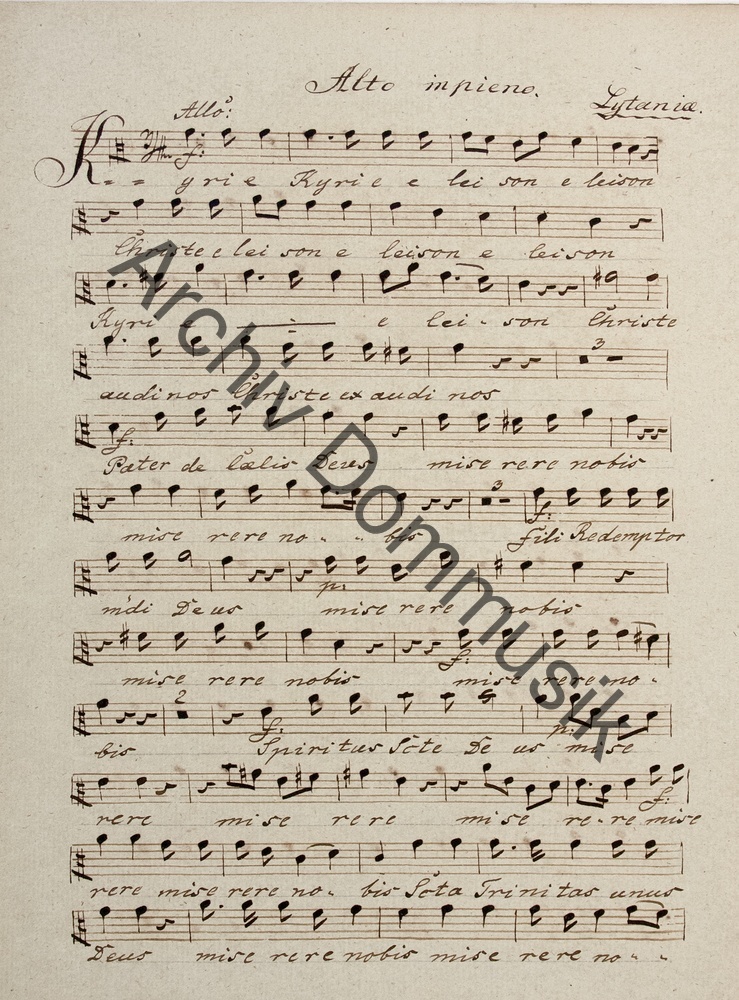 Alto in pieno.
Lytaniæ.
Allo:
f:
K - = yrie Kyrie e lei son e leison
Christe e lei son e leison e leison
Kyrie e lei - son Christe
3
audi nos Christe ex audi nos
f:
Pater de Cælis Deus mise rere nobis
3
f:
mise rere no - - bis Fili Redemptor
p:
mdi Deus mise rere nobis
f:
mise rere nobis mise rere no -
2
f: p:
bis Spiritus Scte De us mi se
f:
rere mise rere mi se re - re mise
rere mise rere no - bis Scta Trinitas unus
Deus mise rere nobis mise rere no - -
Archiv Dommusik